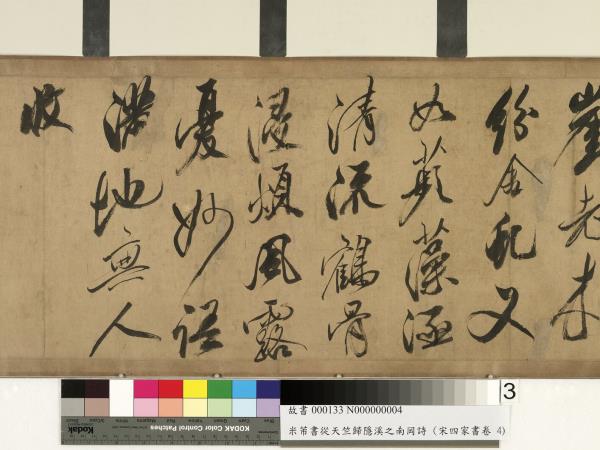 老木
紛亂又
如蘋藻涵
清流鶴骨
漫煩風露
憂妙語
滿地無人
收
3
Kodak
KODAK Color Control Patches
故書 000133 N000000004
米芾書從天竺歸隱溪之南岡詩（宋四家書卷 4）